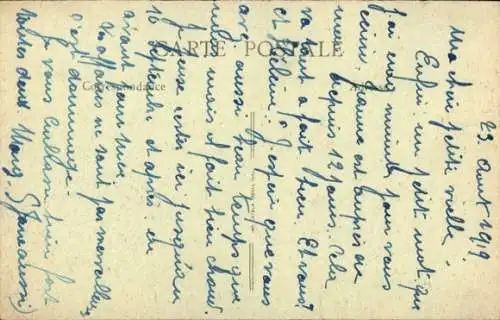 CARTE POSTALE
Correspondance
23 Aout 1919
Ma chère petite vieille
Enfin un petit mot que
j'ai cinq minutes pour vous
écrire. Jeanne est auprès de
moi depuis 12 jours. Cela
va tout à fait bien. Et vous?
et Hélène? J'espère que vous
avez aussi beau temps que
nous mais il fait bien chaud.
Je pense rester ici jusqu'au
10 Septembre et après on
avisera sans suite
Les affaires ne sont pas merveilleuses
c'est dommage.
Je vous embrasse bien fort
toutes deux. Marg.